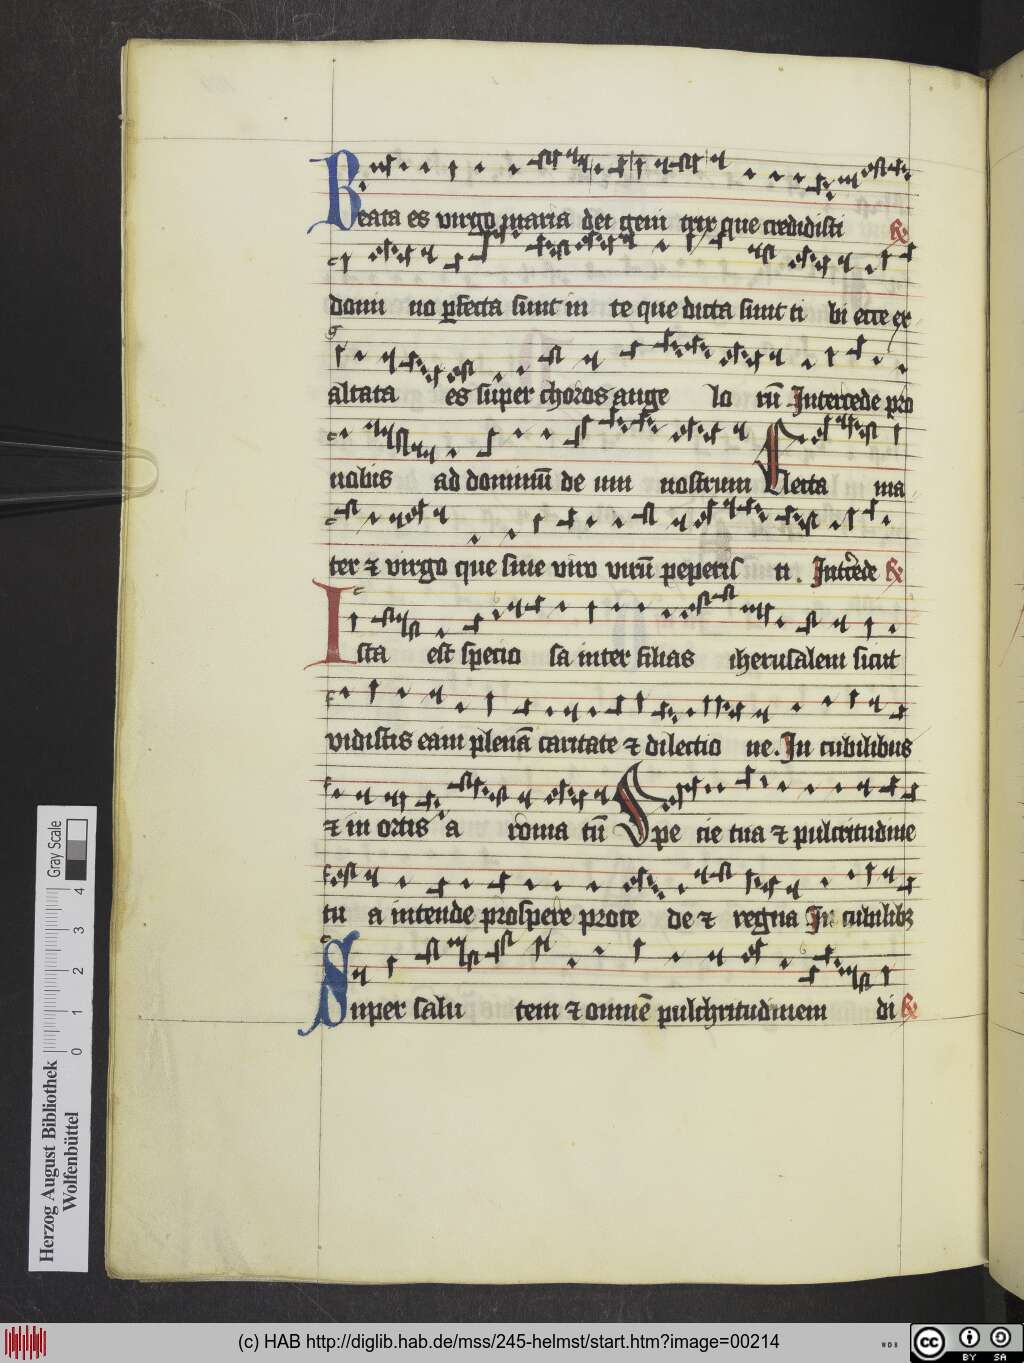 Beata es virgo maria dei geni trix que credidisti R
domi no pfecta sunt in te que dicta sunt ti bi ecce ex
altata es super choros ange lo rū Intercede pro
nobis ad dominū de um nostrum Electa ma
ter ⁊ virgo que sine viro virū peperis ti . Int̄cede R
Ista est specio sa inter filias iherusalem sicut
vidistis eam plenā caritate ⁊ dilectio ne . In cubilibus
⁊ in ortis a roma tū Spe cie tua ⁊ pulcritudine
tu a intende prospere proce de ⁊ regna In cubilibꝫ
Super salu tem ⁊ omnē pulchritudinem di R
Gray Scale
0 1 2 3 4
Herzog August Bibliothek
Wolfenbüttel
(c) HAB http://diglib.hab.de/mss/245-helmst/start.htm?image=00214
WDB
cc BY SA